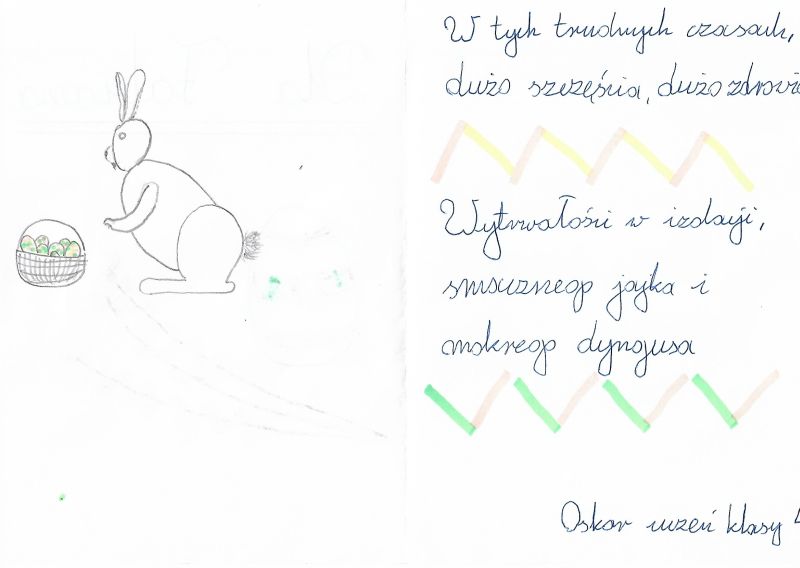 W tych trudnych czasach,
dużo szczęścia, dużo zdrowia
Wytrwałości w izolacji,
smacznego jajka i
mokrego dyngusa
Oskar uczeń klasy